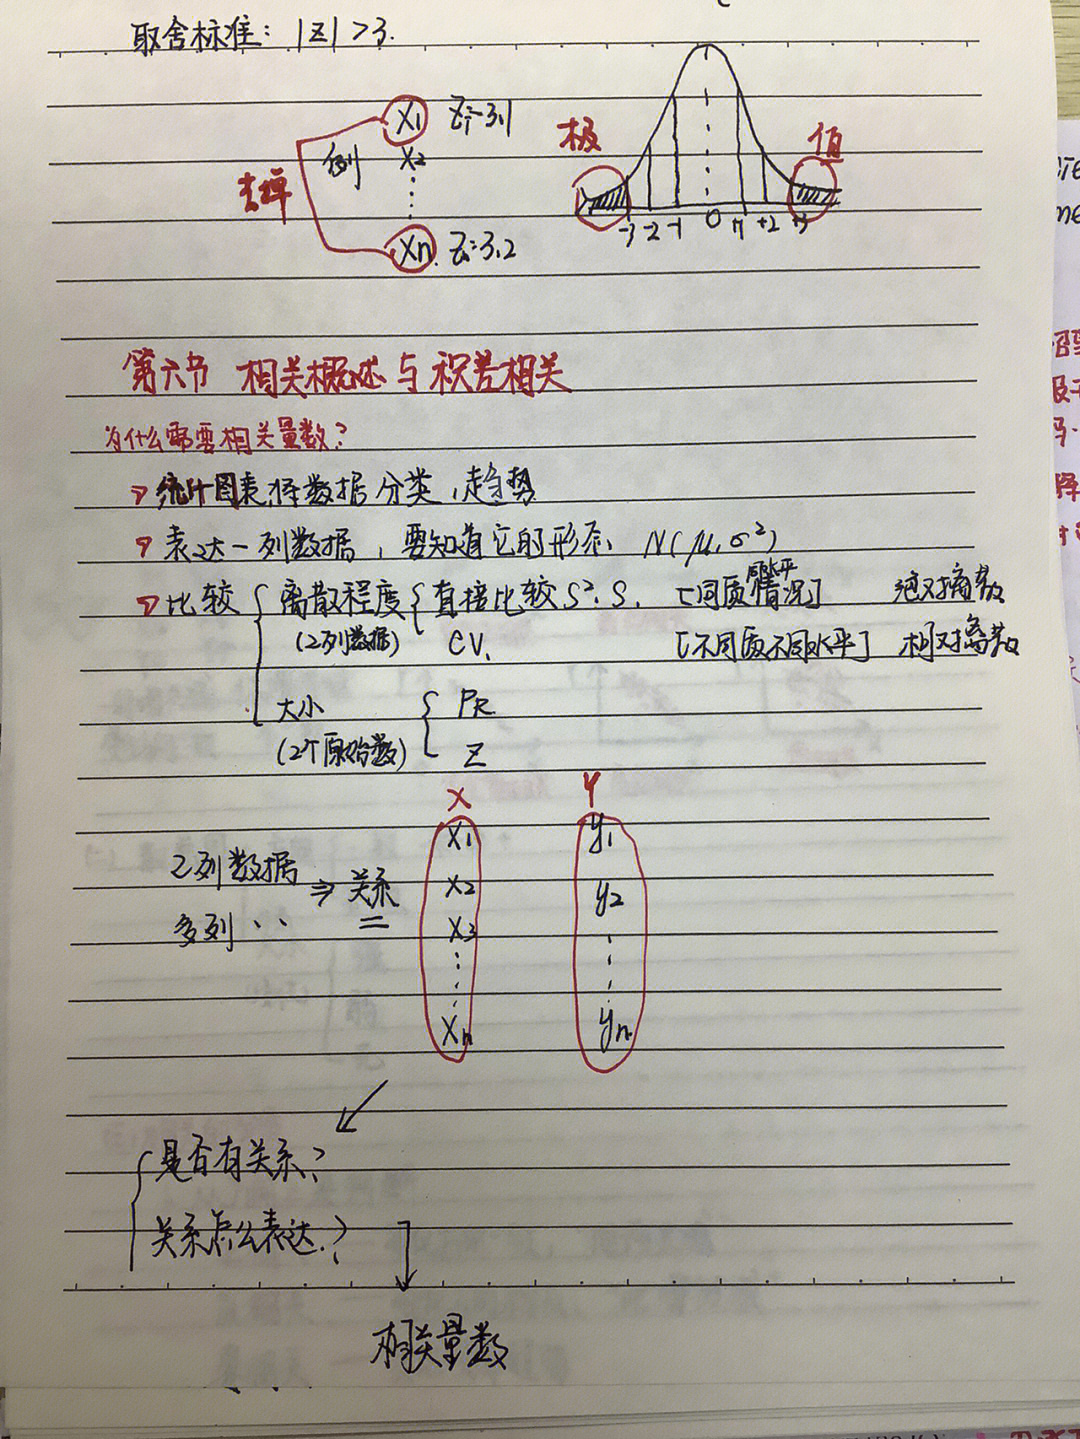 取舍标准：|Z|>3.
X1 Z=-3.1
极 值
例 X2
去掉
Xn. Z=3.2
-3 -2 -1 0 +1 +2 +3
第六节 相关概述与积差相关
为什么需要相关量数？
统计图表将数据分类，趋势
表达一列数据，要知道它的形态 N(μ.σ²)
比较 离散程度 直接比较S².S. [同质 同水平 情况] 绝对离散
(2列数据) CV. [不同质不同水平] 相对离散
大小 PR
(2个原始数) Z
X Y
X1 y1
2列数据 ⇒ 关系 X2 y2
多列·· X3
Xn yn
是否有关系？
关系怎么表达.？
相关量数